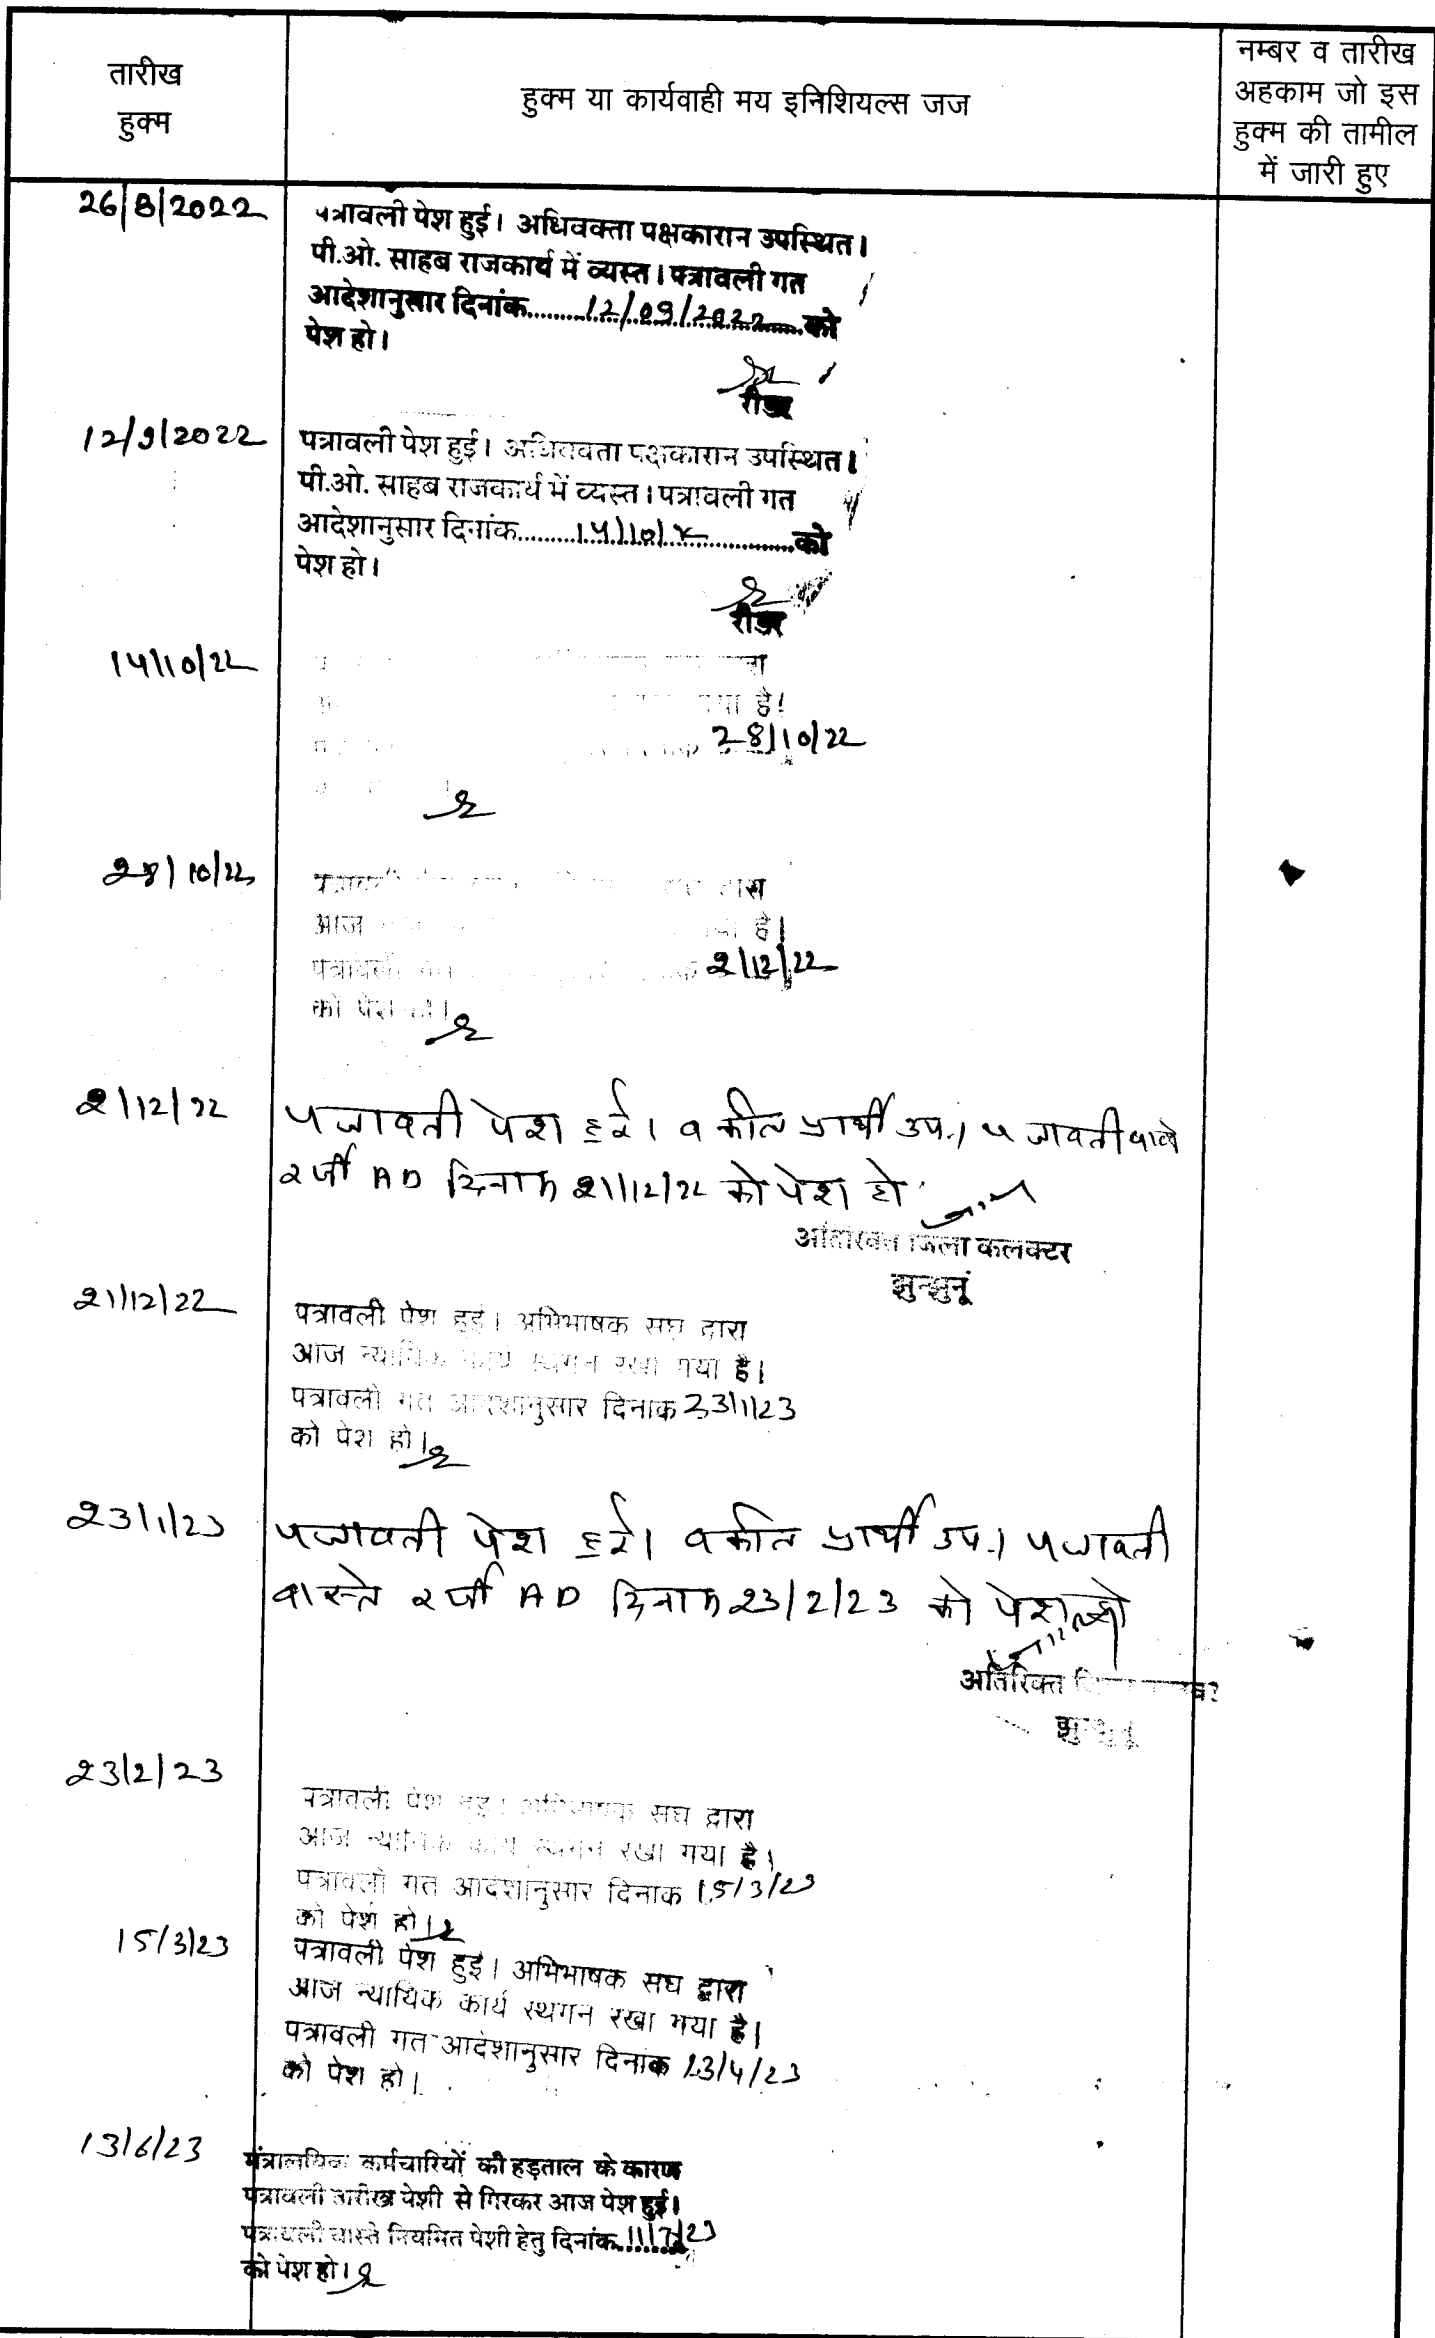 तारीख
हुक्म
हुक्म या कार्यवाही मय इनिशियल्स जज
नम्बर व तारीख
अहकाम जो इस
हुक्म की तामील
में जारी हुए
26/8/2022
पत्रावली पेश हुई। अधिवक्ता पक्षकारान उपस्थित।
पी.ओ. साहब राजकार्य में व्यस्त। पत्रावली गत
आदेशानुसार दिनांक..........12/09/2022..........को
पेश हो।
रीडर
12/9/2022
पत्रावली पेश हुई। अधिवक्ता पक्षकारान उपस्थित।
पी.ओ. साहब राजकार्य में व्यस्त। पत्रावली गत
आदेशानुसार दिनांक..........14/10/..........को
पेश हो।
रीडर
14/10/22
है।
28/10/22
28/10/22
द्वारा
आज है।
पत्रावली गत 2/12/22
को पेश हो।
2/12/22
पत्रावली पेश हुई। वकील प्रार्थी उप.। पत्रावली वास्ते
रजी AD दिनांक 21/12/22 को पेश हो
अतिरिक्त जिला कलक्टर
झुन्झुनूं
21/12/22
पत्रावली पेश हुई। अभिभाषक संघ द्वारा
आज न्यायिक कार्य स्थगन रखा गया है।
पत्रावली गत आदेशानुसार दिनांक 23/1/23
को पेश हो।
23/1/23
पत्रावली पेश हुई। वकील प्रार्थी उप.। पत्रावली
वास्ते रजी AD दिनांक 23/2/23 को पेश हो
अतिरिक्त
झुन्झुनूं
23/2/23
पत्रावली पेश हुई। अभिभाषक संघ द्वारा
आज न्यायिक कार्य स्थगन रखा गया है।
पत्रावली गत आदेशानुसार दिनांक 15/3/23
को पेश हो।
15/3/23
पत्रावली पेश हुई। अभिभाषक संघ द्वारा
आज न्यायिक कार्य स्थगन रखा गया है।
पत्रावली गत आदेशानुसार दिनांक 13/4/23
को पेश हो।
13/6/23
मंत्रालयिक कर्मचारियों की हड़ताल के कारण
पत्रावली तारीख पेशी से गिरकर आज पेश हुई।
पत्रावली वास्ते नियमित पेशी हेतु दिनांक..11/7/23
को पेश हो।